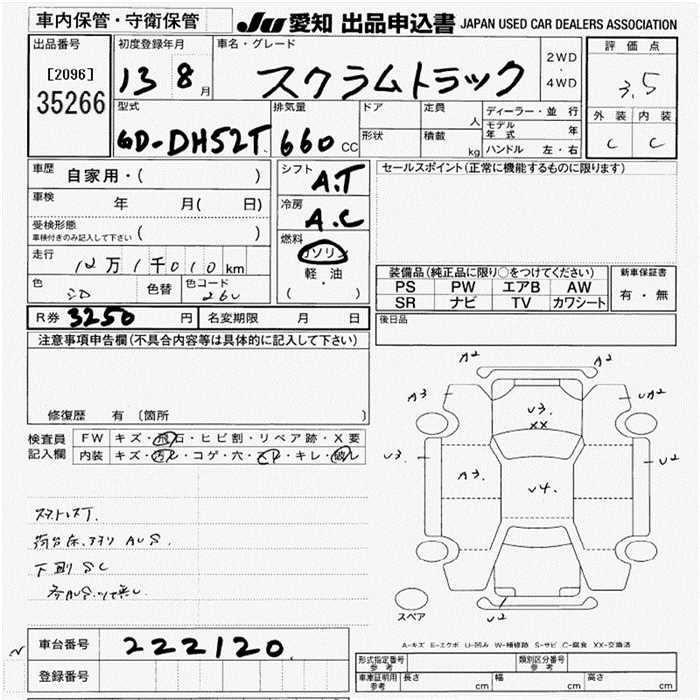 車内保管・守衛保管
JU 愛知 出品申込書 JAPAN USED CAR DEALERS ASSOCIATION
出品番号
[2096]
35266
初度登録年月
13 8 月
車名・グレード
スクラムトラック
2WD
・
4WD
評価点
3.5
外装 内装
C C
型式
GD-DH52T
排気量
660 CC
ドア
形状
定員
人
積載
kg
ディーラー・並行
モデル年式 年
ハンドル 左・右
車歴 自家用・( )
車検 年 月( 日)
受検形態
車検付きのみ記入して下さい ( )
走行 12万1千010km
色
色替
色コード
26U
シフト
A.T
冷房
A.C
燃料
ガソリン
軽・油
( )
セールスポイント(正常に機能するものに限ります)
装備品(純正品に限り○をつけてください)
PS PW エアB AW
SR ナビ TV カワシート
新車保証書
有・無
R券 3250 円
名変期限 月 日
後日品
注意事項申告欄(不具合内容等は具体的に記入して下さい)
修復歴 有 〔箇所 〕
検査員
記入欄
FW キズ・飛石・ヒビ割・リペア跡・X要
内装 キズ・汚レ・コゲ・穴・スレ・キレ・破レ
下廻 SC
A2 A2
A3 UA2
U3.
XX
U3 A3. U4. U2
U2
スペア
A-キズ E-エクボ U-凹み W-補修跡 S-サビ C-腐食 XX-交換済
車台番号 222120
登録番号
形式指定番号
参考
類別区分番号
参考
車庫証明用
参考
長さ cm 幅 cm 高さ cm